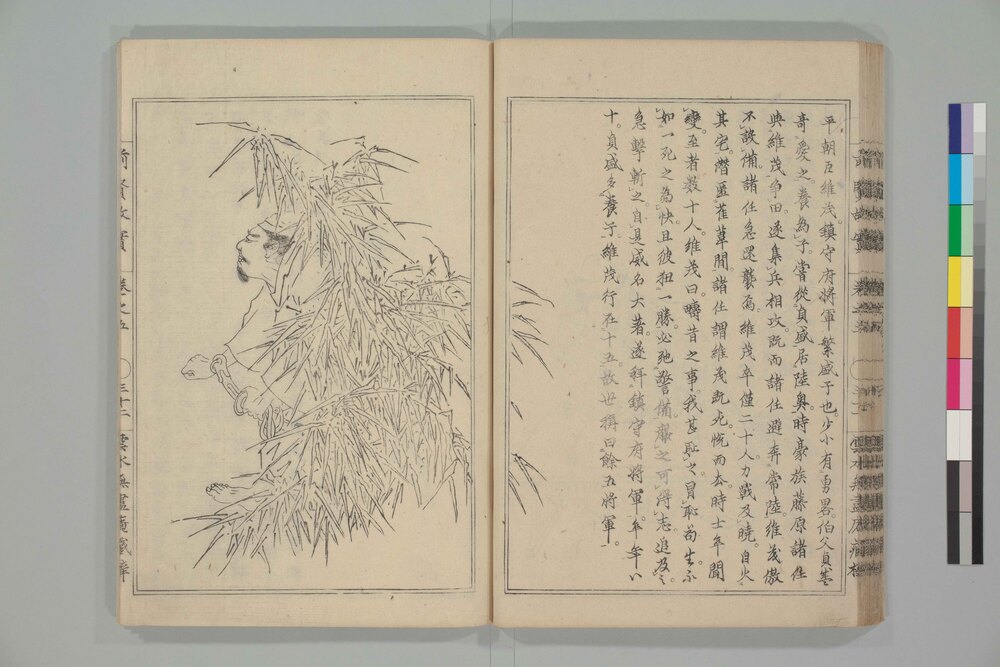 平朝臣維茂。鎮守府將軍繁盛子也。少小有勇畧。伯父貞盛
奇愛之。養為子。嘗從貞盛居陸奥。時豪族藤原諸任
與維茂争田。遂集兵相攻。既而諸任避奔常陸。維茂傲
不設備。諸任急還襲為。維茂卒僅二十人。力戰及曉。自火
其宅。潜匿萑草間。諸任謂維茂既死。悦而去。時士卒聞
變。至者数十人。維茂曰。疇昔之事。我甚恥之。冒恥苟生。不
如一死之為快。且彼狃一勝。必弛警備。襲之可得志。追及之
急擊斬之。自是威名大著。遂拜鎮守府將軍。卒年八
十。貞盛多養子。維茂行在十五。故世稱曰餘五將軍。
前賢故實 卷之五 三十二 雲水無盡庵藏梓